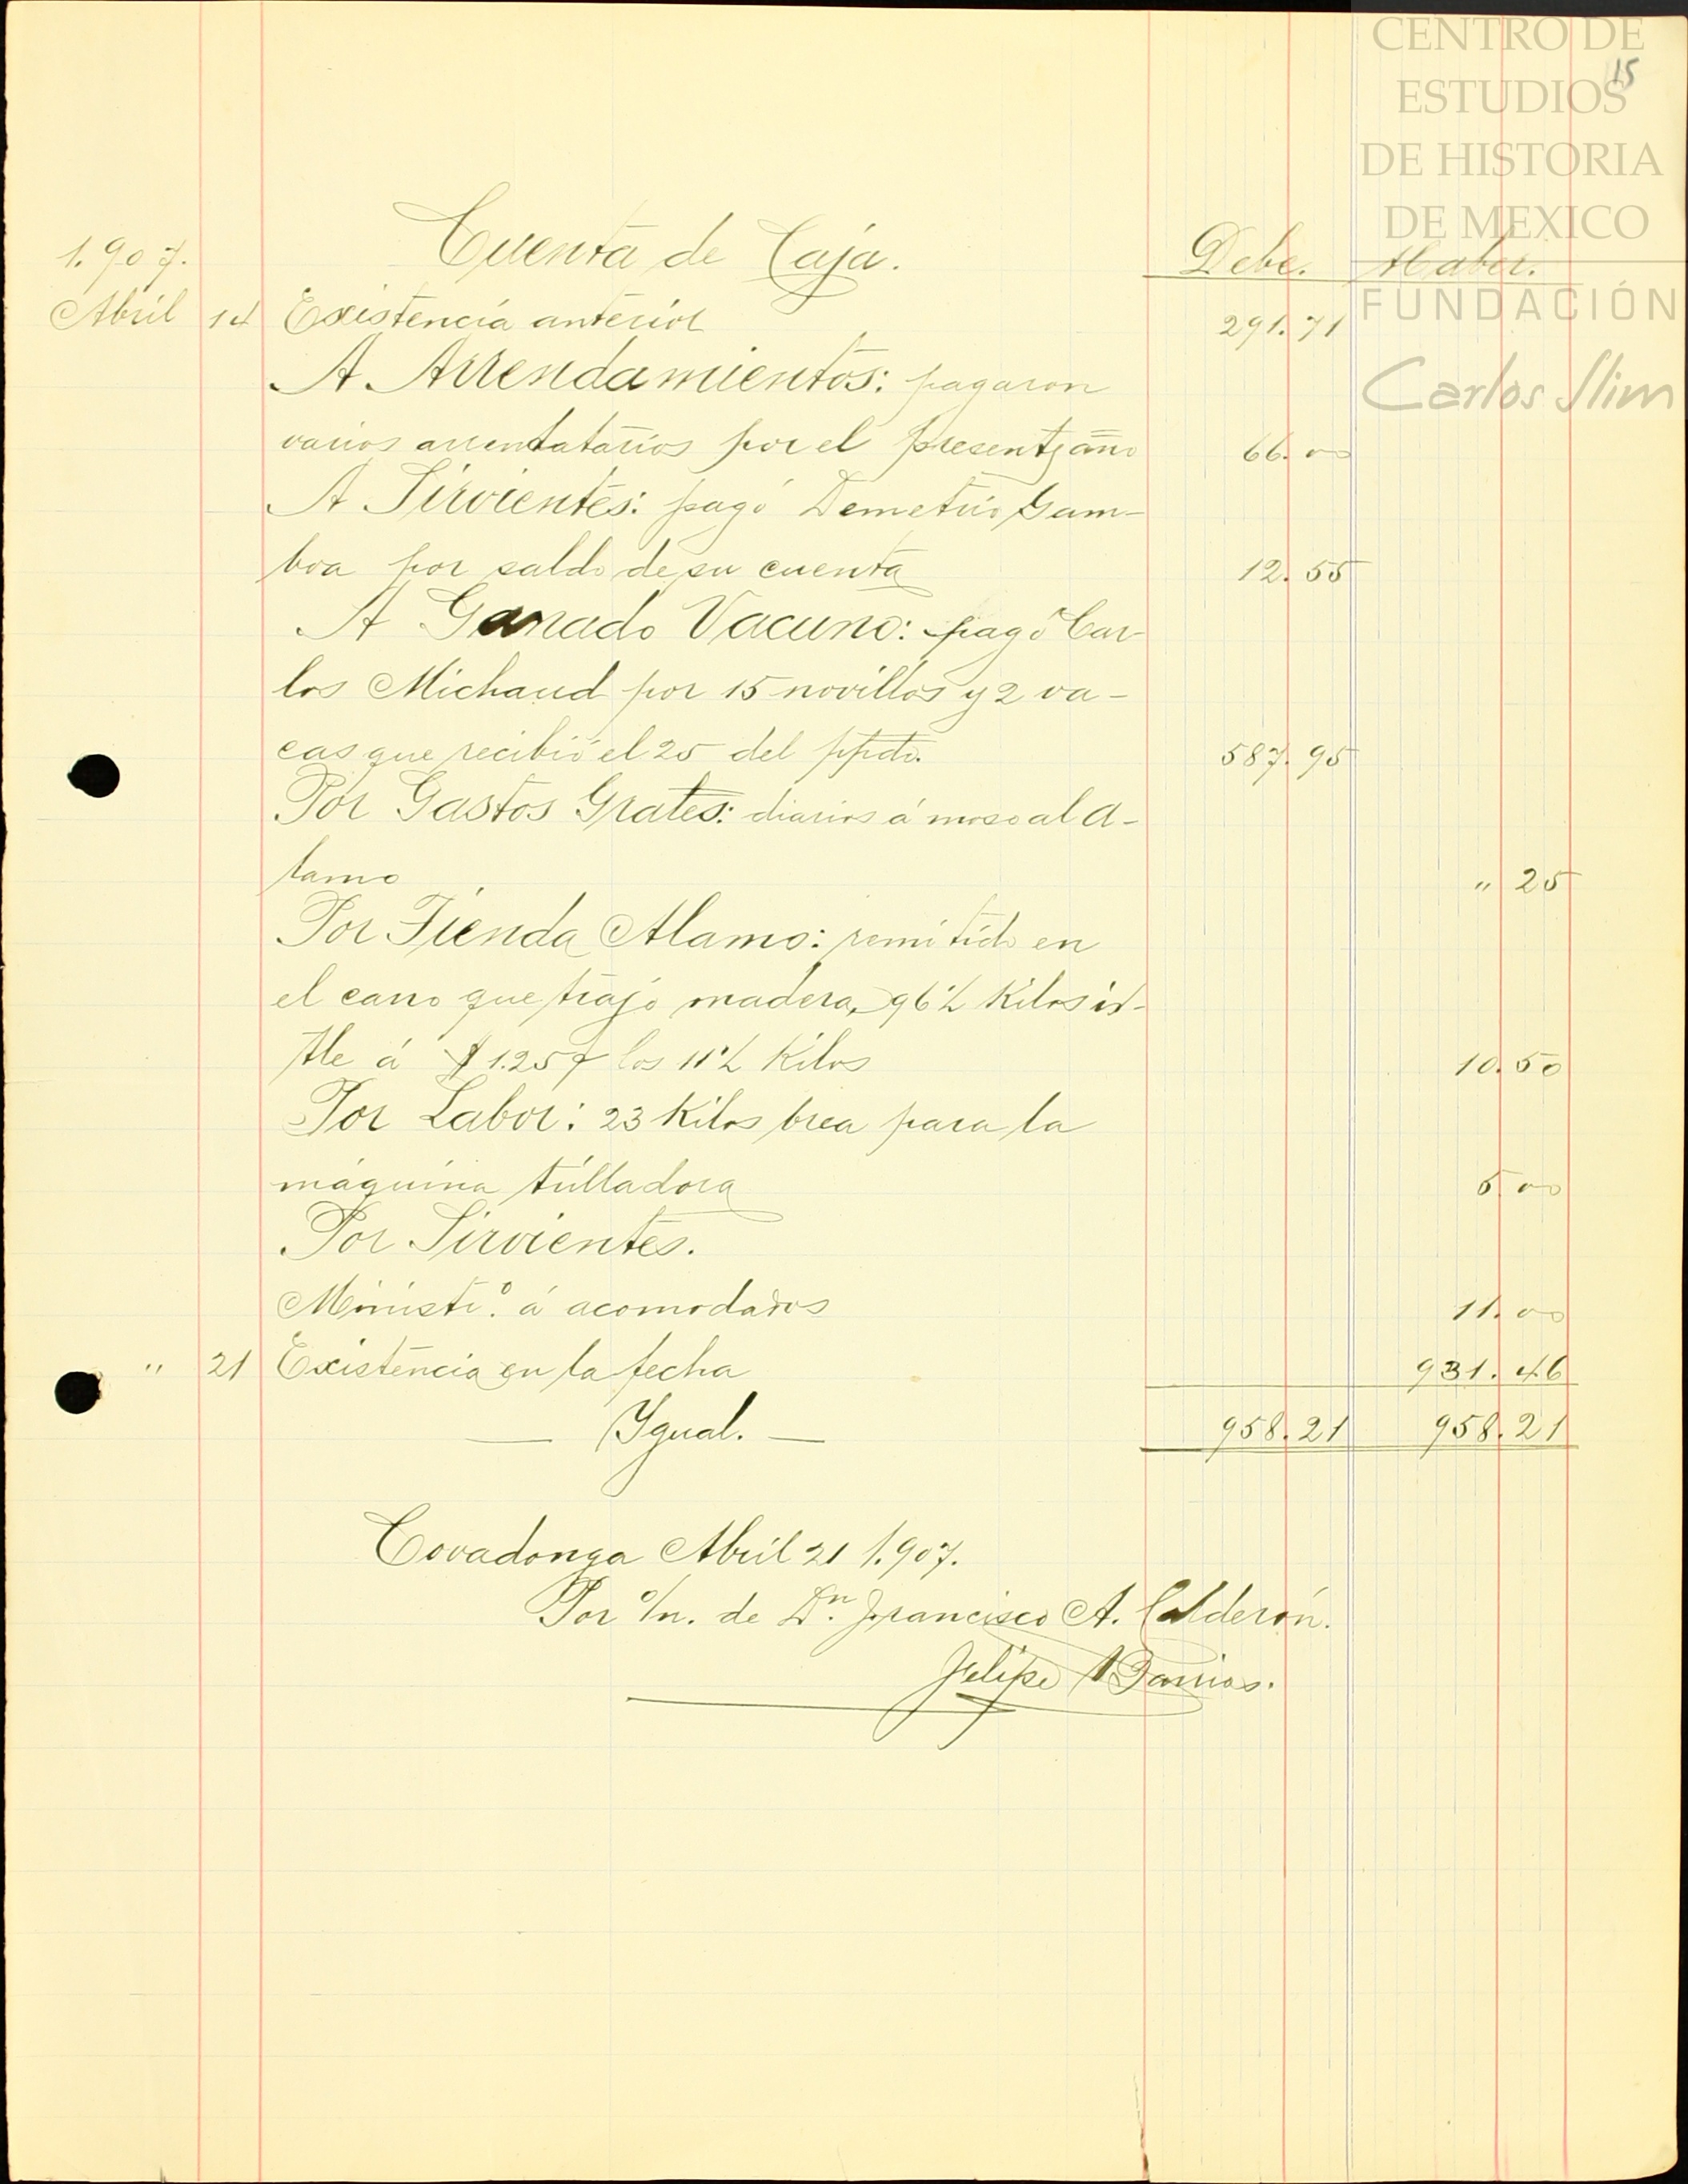 CENTRO DE
ESTUDIOS
DE HISTORIA
DE MEXICO
FUNDACIÓN
Carlos Slim
15
1.907. Cuenta de Caja. Debe. Haber.
Abril 14 Existencia anterior 291.71
A Arrendamientos: pagaron
varios arrentatarios por el presente año 66.00
A Sirvientes: pagó Demetrio Gam-
boa por saldo de su cuenta 12.55
A Ganado Vacuno: pagó Car-
los Michaud por 15 novillos y 2 va-
cas que recibió el 25 del ppdo. 587.95
Por Gastos Grales: diarios á moso al A-
lamo " 25
Por Tienda Alamo: remitido en
el carro que trajo madera, 96½ Kilos ix-
tle á $1.25 los 11½ Kilos 10.50
Por Labor: 23 Kilos brea para la
máquina trilladora 5 00
Por Sirvientes.
Ministr.º á acomodados 11.00
" 21 Existencia en la fecha 931.46
— Ygual. — 958.21 958.21
Covadonga Abril 21 1.907.
Por o/n. de Dn. Francisco A. Calderón.
Felipe Barrios.